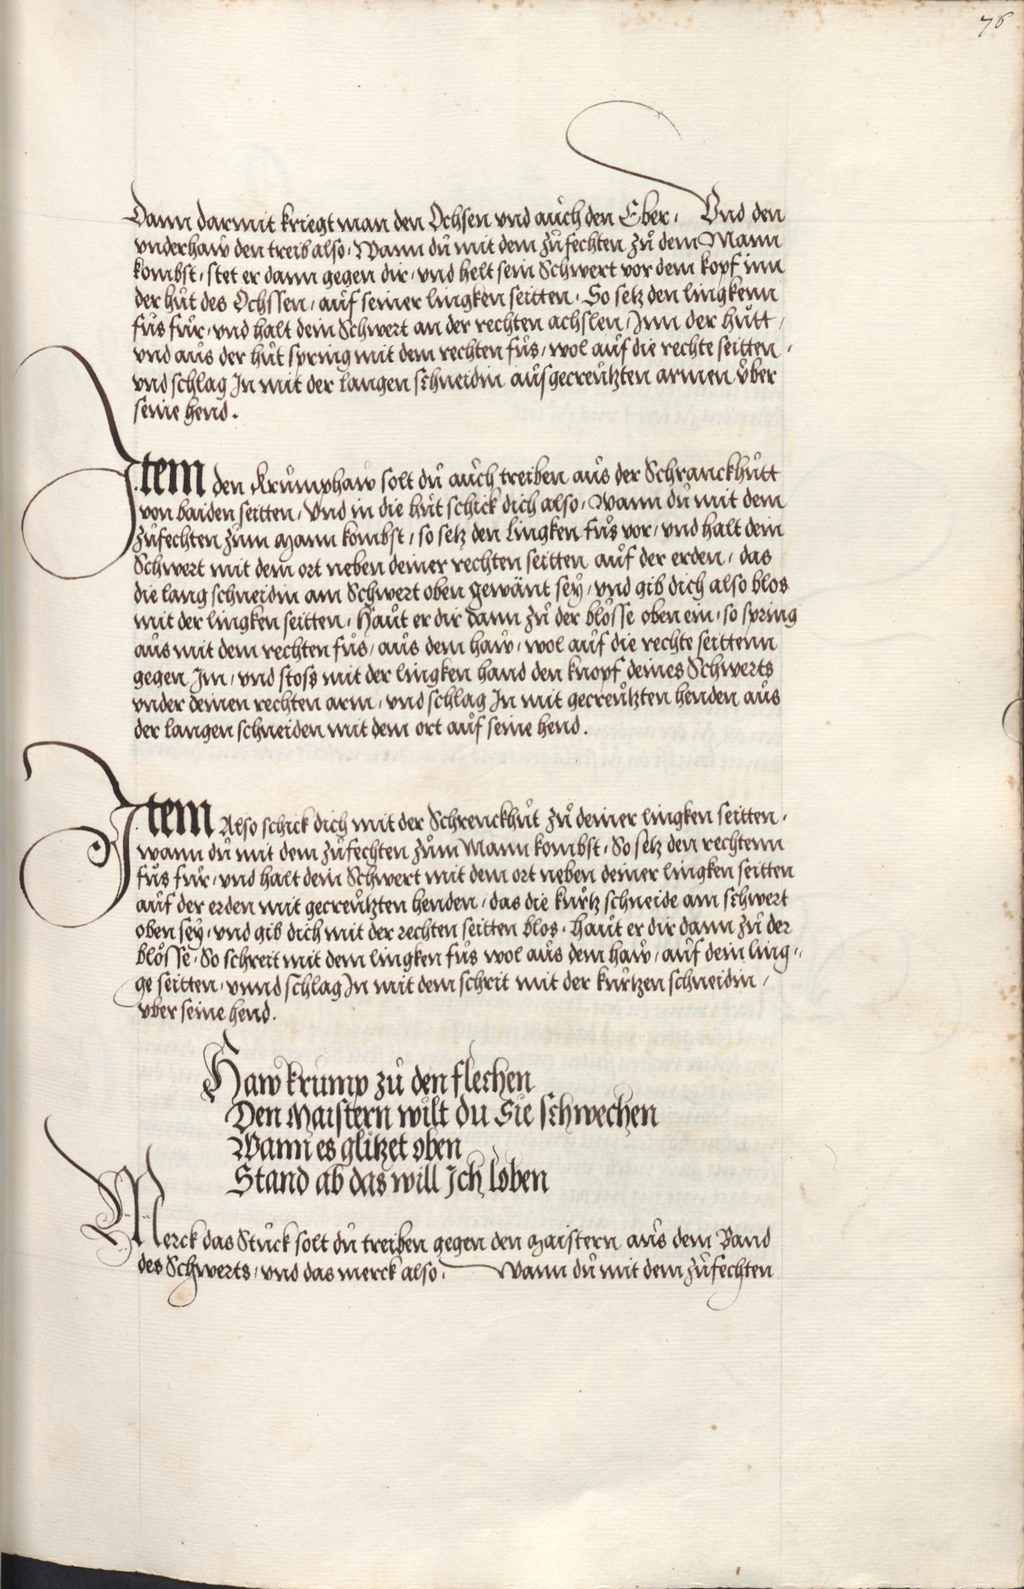 76
Dann darmit kriegt man den Ochsen vnd aůch den Eber, Vnd den
vnderhaw den treib also, Wann dů mit dem zůfechten zů dem Mann
kombst, stet er dann gegen dir, vnd helt sein Schwert vor dem kopf inn
der hůt des Ochssen, aůf seiner lingken seitten, So setz den lingkenn
fůs fůr, vnd halt dein Schwert an der rechten achslen, Jnn der hůtt,
vnd aůs der hůt spring mit dem rechten fůs, wol aůf die rechte seitten,
vnd schlag In mit der langen schneidin aůsgecreůtzten armen ůber
seine hend.
Jtem den Krůmphaw solt dů aůch treiben aůs der Schranckhůtt
von baiden seitten, Vnd in die hůt schick dich also, Wann dů mit dem
zůfechten zům mann kombst, so setz den Lingken fůs vor, vnd halt dein
Schwert mit dem ort neben deiner rechten seitten aůf der erden, das
die lang schneidin am Schwert oben gewänt seÿ, vnd gib dich also blos
mit der lingken seitten, Haůt er dir dann zů der blösse oben ein, so spring
aůs mit dem rechten fůs, aůs dem haw, wol aůf die rechte seittenn
gegen Jm, vnd stoss mit der lingken hand den knopf deines Schwerts
vnder deinen rechten arm, vnd schlag In mit gecreůtzten henden aůs
der langen schneiden mit dem ort aůf seine hend.
Jtem Also schick dich mit der Schrenckhůt zů deiner lingken seitten,
wann dů mit dem zůfechten zům Mann kombst, So setz den rechtenn
fůs fůr, vnd halt dein Schwert mit dem ort neben deiner lingken seitten
aůf der erden mit gecreůtzten henden, das die kůrtz schneide am schwert
oben seÿ, vnd gib dich mit der rechten seitten blos, haůt er dir dann zů der
blösse, So schreit mit dem lingken fůs wol aůs dem haw, aůf dein ling=
ge seitten, vnnd schlag Jn mit dem schrit mit der kůrtzen schneidin,
vber seine hend.
Haw krump zů den flechen
Den Maistern wilt du Sie schwechen
Wann es glitzet oben
Stand ab das will Jch loben
Merck das Stůck solt dů treiben gegen den maistern aůs dem Band
des Schwerts, vnd das merck also, Wann dů mit dem zůfechten